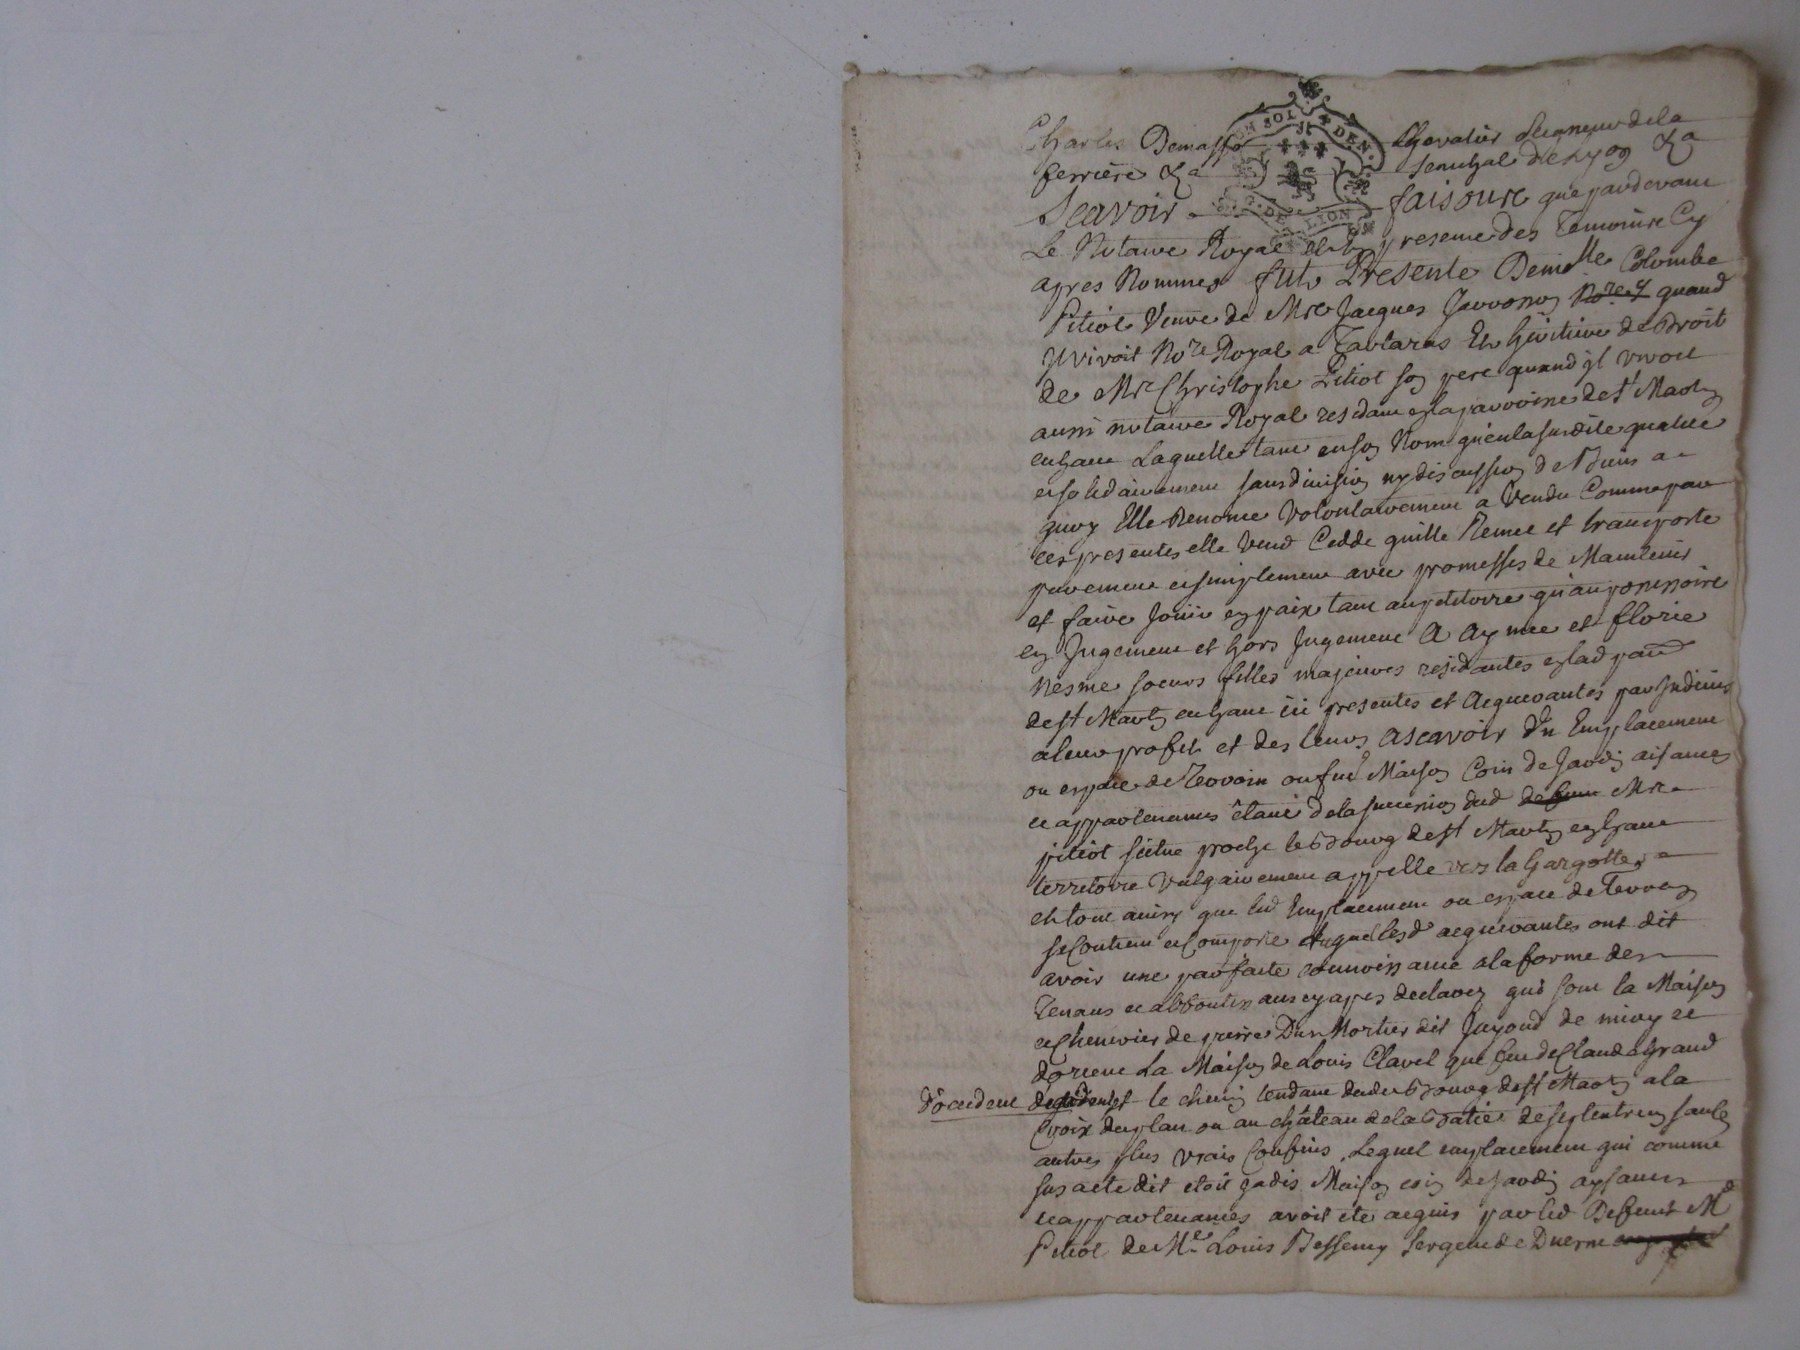 Charles Demasso Chevalier Seigneur dela
ferriere &a Senechal de Lyon &a
Scavoir faisons que pardevant
Le Notaire Royal et en presence des Temoins Cy
apres Nommes fut Presente Demlle Colombe
Pitiot Veuve de Mre Jacques Jauvonn Nore R quand
Jl vivoit Nore Royal a Tartaras Et heritiere de droit
de Mre Christophe Pitiot son pere quand jl vivoit
aussi notaire Royal residant en la parroisse de st Martin
enhaut Laquelle tant en son Nom qu'en la susdite qualité
et solidairement sans division ny discussion de Biens a
quoy Elle Renonce Volontairement a Vendu Comme par
ces presentes elle Vend Cedde quitte Remet et transporte
purement et simplement avec promesses de Maintenir
et faire Jouir en paix tant au petitoire qu'au possessoire
en Jugement et hors Jugement A Aymée et florie
Nesme soeurs filles majeures residantes en lad parr
de st Martin enhaut ici presentes et Acquerantes par Jndivis
a leur profit et des leurs Ascavoir d'Un Emplacement
ou espace de Terrein ou fut Maison Coin de Jardin aisances
et appartenances étant de la succession dud defunt Mre
pitiot scitue proche le Bourg de st Martin enhaut
territoire Vulgairement appellé vers la Gargotte
et tout ainsy que led Emplacement ou espace de Terrein
se Contient et Comporte duquel lesd acquerantes ont dit
avoir une parfaite connoissance a la forme des
Tenans et aboutissans cy apres declarez qui sont la Maison
et Chenevier de pierre Du Mortier dit Jayoud de midy et
dorient La Maison de Louis Clavel que fut de Claude Grand
D'occident le chemin tendant dudit Bourg de st Martin a la
Croix du plan ou au château de la Bratie de septentrion sauf les
autres plus vrais Confins. Lequel emplacement qui comme
sus a ete dit etoit jadis Maison coin de Jardin aysances
et appartenances avoit ete acquis par led Defunt Mre
Pitiot de Me Louis Bessemy Sergent de Duerne